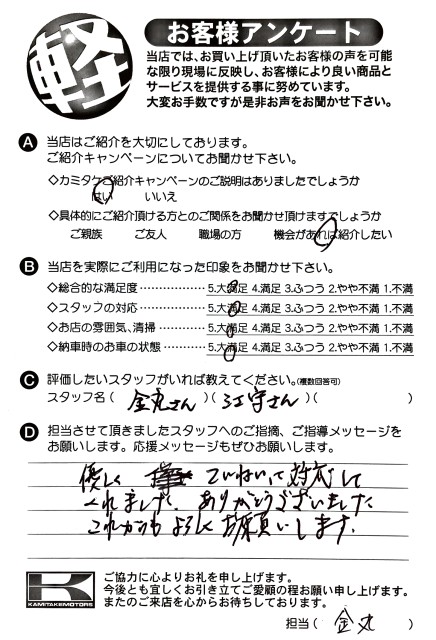 軽
お客様アンケート
当店では、お買い上げ頂いたお客様の声を可能
な限り現場に反映し、お客様により良い商品と
サービスを提供する事に努めています。
大変お手数ですが是非お声をお聞かせ下さい。
A 当店はご紹介を大切にしております。
ご紹介キャンペーンについてお聞かせ下さい。
◇カミタケご紹介キャンペーンのご説明はありましたでしょうか
はい いいえ
◇具体的にご紹介頂ける方とのご関係をお聞かせ頂けますでしょうか
ご親族 ご友人 職場の方 機会があれば紹介したい
B 当店を実際にご利用になった印象をお聞かせ下さい。
◇総合的な満足度 5.大満足 4.満足 3.ふつう 2.やや不満 1.不満
◇スタッフの対応 5.大満足 4.満足 3.ふつう 2.やや不満 1.不満
◇お店の雰囲気、清掃 5.大満足 4.満足 3.ふつう 2.やや不満 1.不満
◇納車時のお車の状態 5.大満足 4.満足 3.ふつう 2.やや不満 1.不満
C 評価したいスタッフがいれば教えてください。(複数回答可)
スタッフ名( 金丸さん )( 江守さん )( )
D 担当させて頂きましたスタッフへのご指摘、ご指導メッセージを
お願いします。応援メッセージもぜひお願いします。
優しく ていねいに対応して
くれました。ありがとうございました
これからも よろしくお願いします。
K
KAMITAKEMOTORS
ご協力に心よりお礼を申し上げます。
今後とも宜しくお引き立てご愛顧の程お願い申し上げます。
またのご来店を心からお待ちしております。
担当( 金丸 )